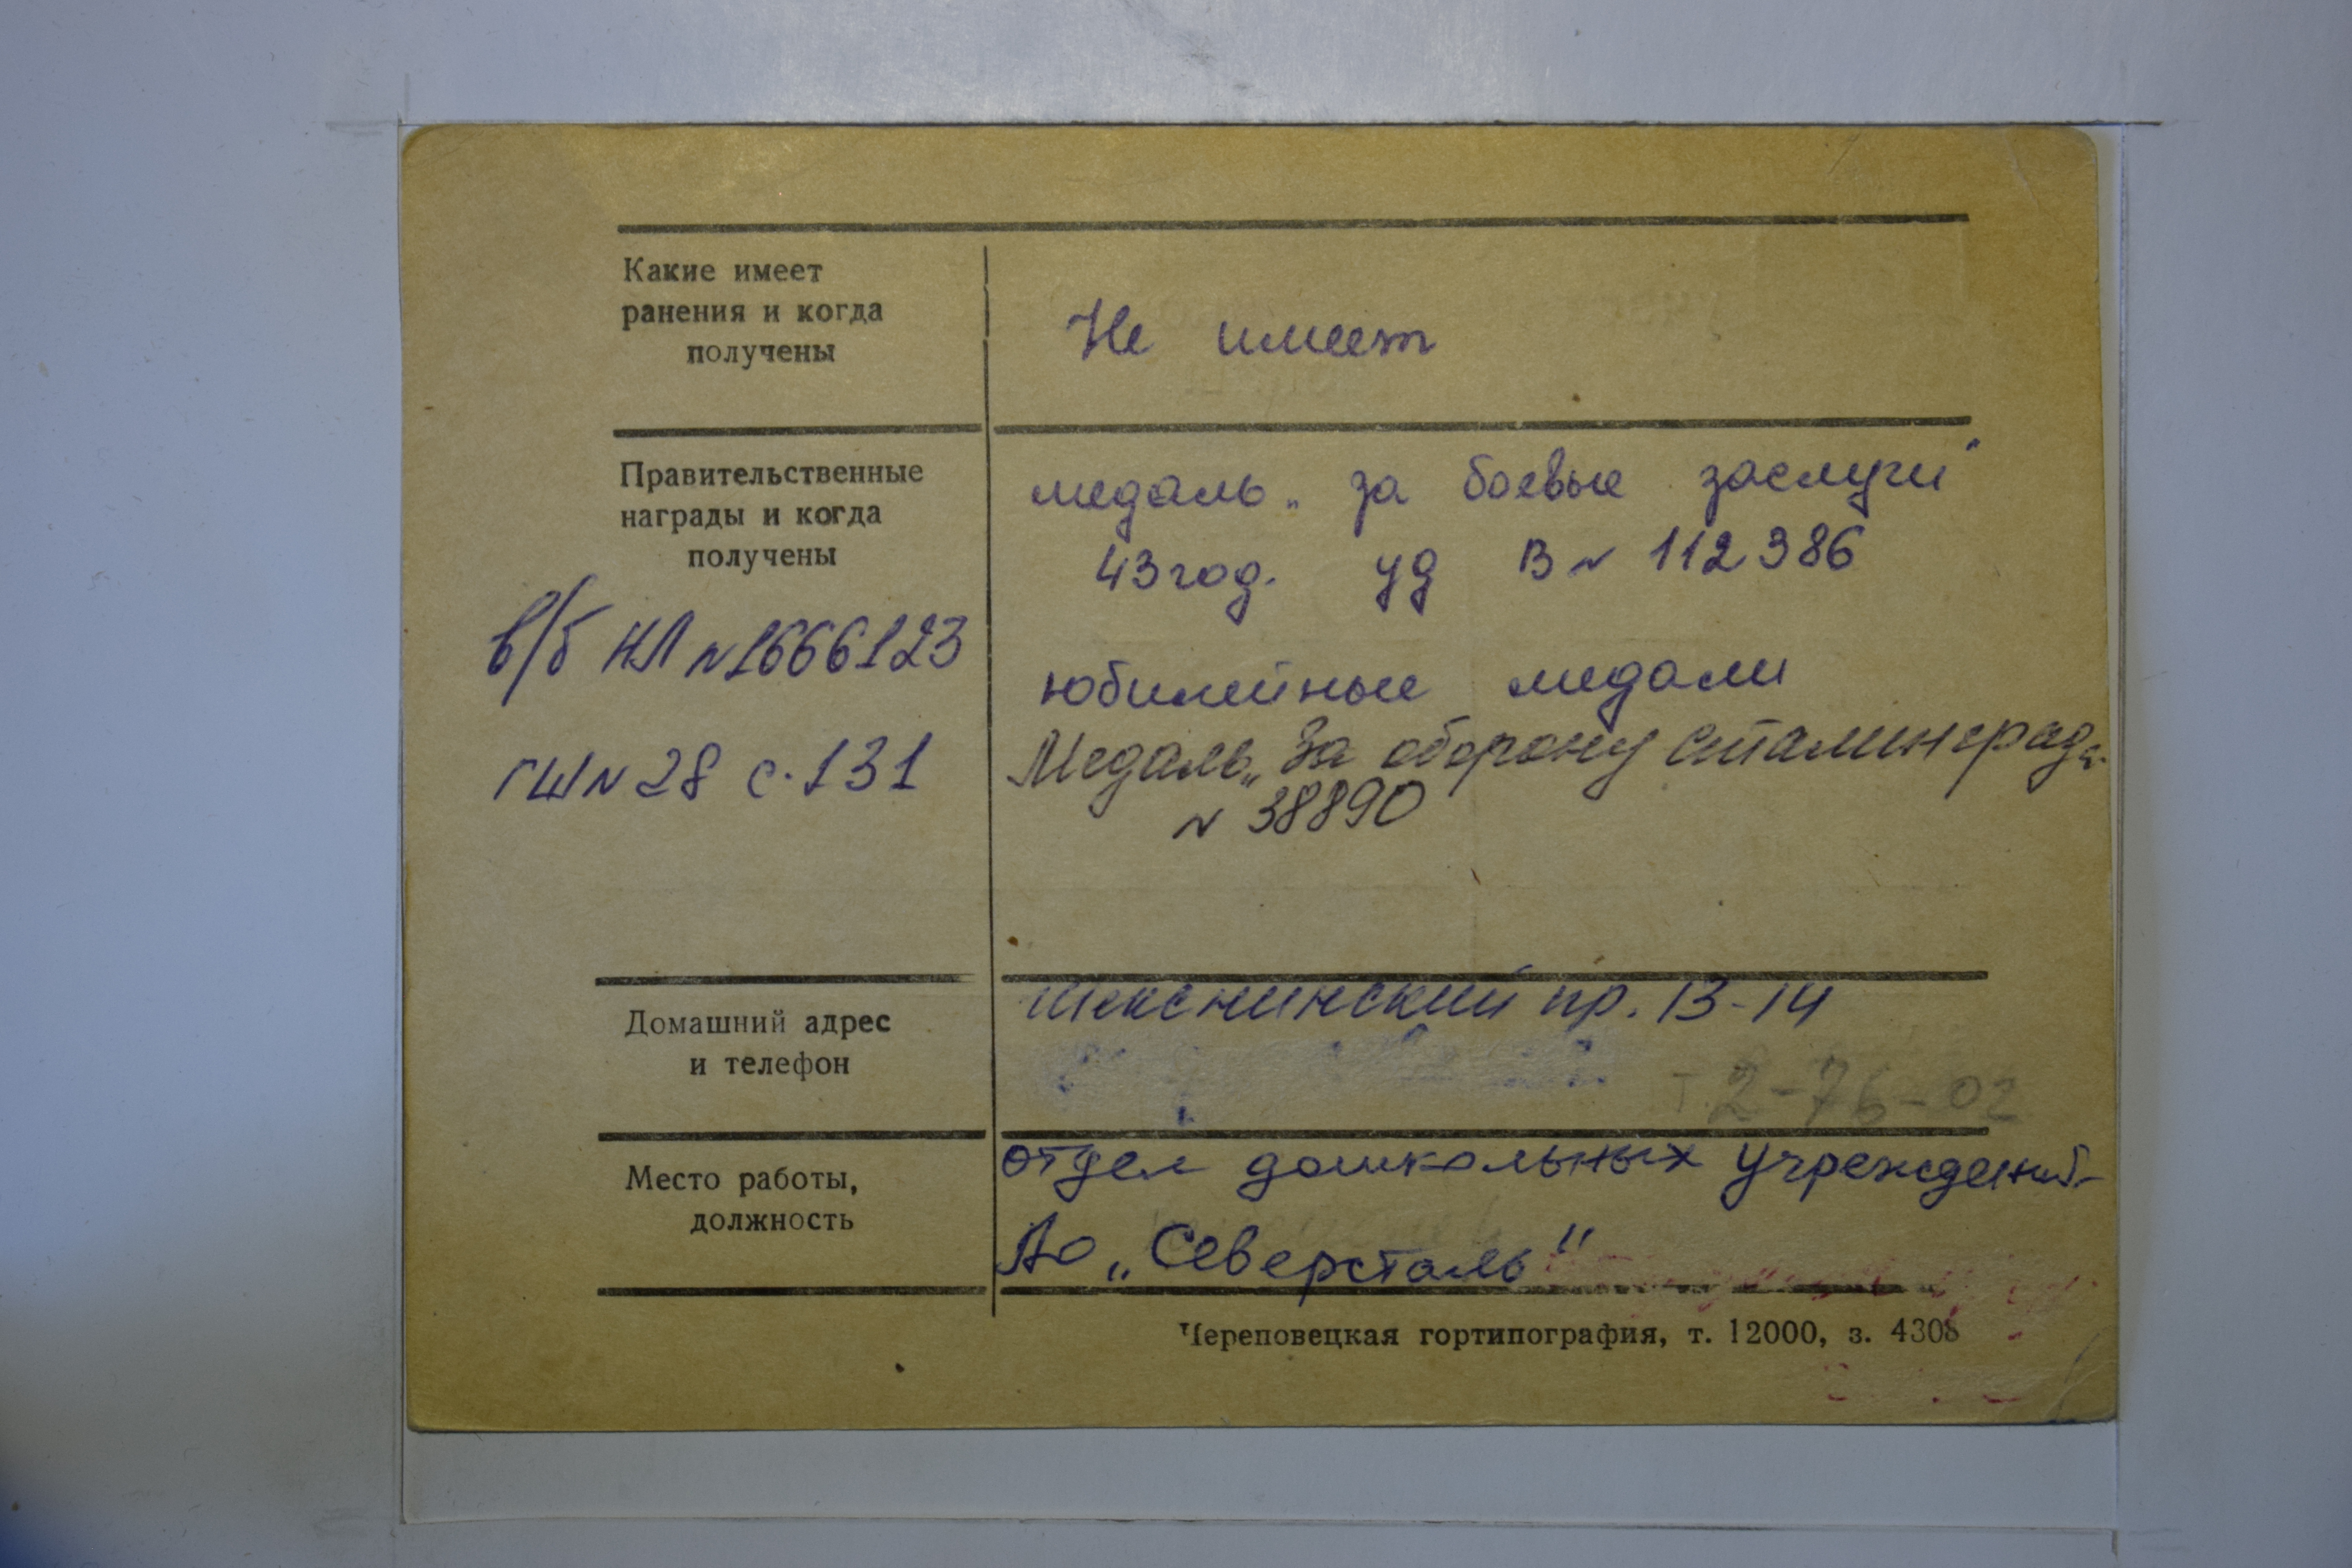 Какие имеет
ранения и когда
получены
Не имеет
Правительственные
награды и когда
получены
медаль „за боевые заслуги"
43 год. уд В № 112386
юбилейные медали
Медаль „За оборону Сталинграда
№ 38890
в/б НЛ № 1666123
ГШ № 28 с. 131
Домашний адрес
и телефон
Шекснинский пр. 13-14
т. 2-76-02
Место работы,
должность
отдел дошкольных учреждений
АО „Северсталь"
Череповецкая гортипография, т. 12000, з. 4308